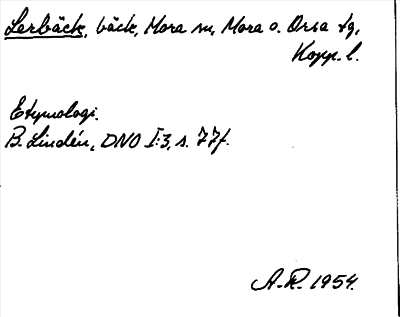 Lerbäck, bäck, Mora sn, Mora o. Orsa tg,
Kopp. l.
Etymologi.
B. Lindén, DNO I:3, s. 77f.
A.-R. 1954.